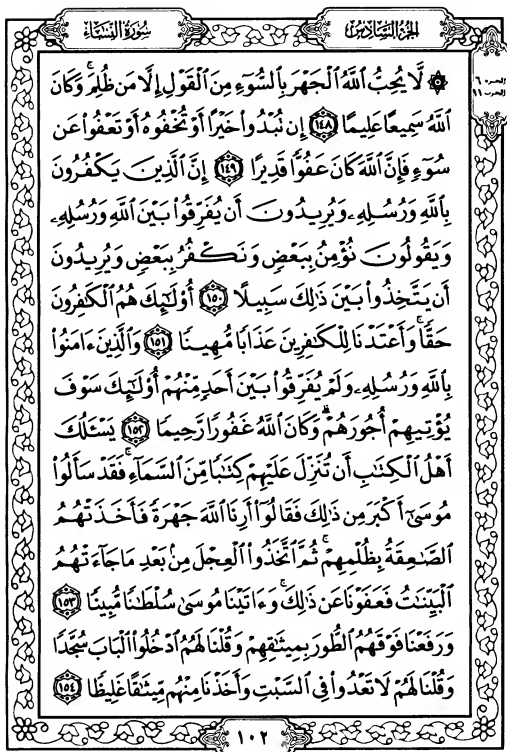 الجزء السادس
سورة النساء
الجزء ٦
الحزب ١١
۞ لَّا يُحِبُّ ٱللَّهُ ٱلْجَهْرَ بِٱلسُّوٓءِ مِنَ ٱلْقَوْلِ إِلَّا مَن ظُلِمَ ۚ وَكَانَ
ٱللَّهُ سَمِيعًا عَلِيمًا ﴿١٤٨﴾ إِن تُبْدُوا۟ خَيْرًا أَوْ تُخْفُوهُ أَوْ تَعْفُوا۟ عَن
سُوٓءٍ فَإِنَّ ٱللَّهَ كَانَ عَفُوًّا قَدِيرًا ﴿١٤٩﴾ إِنَّ ٱلَّذِينَ يَكْفُرُونَ
بِٱللَّهِ وَرُسُلِهِۦ وَيُرِيدُونَ أَن يُفَرِّقُوا۟ بَيْنَ ٱللَّهِ وَرُسُلِهِۦ
وَيَقُولُونَ نُؤْمِنُ بِبَعْضٍ وَنَكْفُرُ بِبَعْضٍ وَيُرِيدُونَ
أَن يَتَّخِذُوا۟ بَيْنَ ذَٰلِكَ سَبِيلًا ﴿١٥٠﴾ أُو۟لَٰٓئِكَ هُمُ ٱلْكَٰفِرُونَ
حَقًّا ۚ وَأَعْتَدْنَا لِلْكَٰفِرِينَ عَذَابًا مُّهِينًا ﴿١٥١﴾ وَٱلَّذِينَ ءَامَنُوا۟
بِٱللَّهِ وَرُسُلِهِۦ وَلَمْ يُفَرِّقُوا۟ بَيْنَ أَحَدٍ مِّنْهُمْ أُو۟لَٰٓئِكَ سَوْفَ
يُؤْتِيهِمْ أُجُورَهُمْ ۗ وَكَانَ ٱللَّهُ غَفُورًا رَّحِيمًا ﴿١٥٢﴾ يَسْـَٔلُكَ
أَهْلُ ٱلْكِتَٰبِ أَن تُنَزِّلَ عَلَيْهِمْ كِتَٰبًا مِّنَ ٱلسَّمَآءِ ۚ فَقَدْ سَأَلُوا۟
مُوسَىٰٓ أَكْبَرَ مِن ذَٰلِكَ فَقَالُوٓا۟ أَرِنَا ٱللَّهَ جَهْرَةً فَأَخَذَتْهُمُ
ٱلصَّٰعِقَةُ بِظُلْمِهِمْ ۚ ثُمَّ ٱتَّخَذُوا۟ ٱلْعِجْلَ مِنۢ بَعْدِ مَا جَآءَتْهُمُ
ٱلْبَيِّنَٰتُ فَعَفَوْنَا عَن ذَٰلِكَ ۚ وَءَاتَيْنَا مُوسَىٰ سُلْطَٰنًا مُّبِينًا ﴿١٥٣﴾
وَرَفَعْنَا فَوْقَهُمُ ٱلطُّورَ بِمِيثَٰقِهِمْ وَقُلْنَا لَهُمُ ٱدْخُلُوا۟ ٱلْبَابَ سُجَّدًا
وَقُلْنَا لَهُمْ لَا تَعْدُوا۟ فِى ٱلسَّبْتِ وَأَخَذْنَا مِنْهُم مِّيثَٰقًا غَلِيظًا ﴿١٥٤﴾
١٠٢